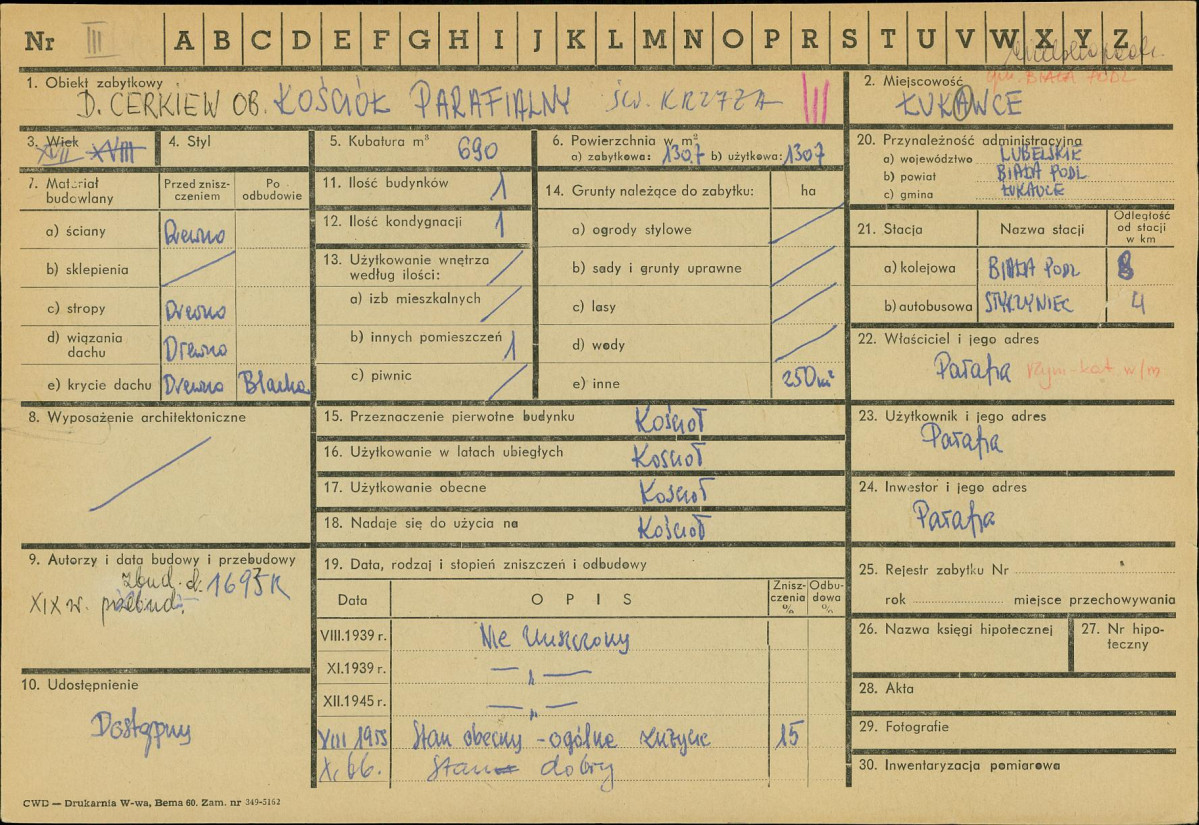 Nr III A B C D E F G H I J K L M N O P R S T U V W X Y Z
gm. BIAŁA PODL
1. Obiekt zabytkowy
D. CERKIEW OB. KOŚCIÓŁ PARAFIALNY ŚW. KRZYŻA III
2. Miejscowość
ŁUKAWCE
3. Wiek
XVII XVIII
4. Styl
5. Kubatura m³ 690
6. Powierzchnia w m²
a) zabytkowa: 130,7 b) użytkowa: 130,7
20. Przynależność administracyjna
a) województwo LUBELSKIE
b) powiat BIAŁA PODL
c) gmina ŁUKAWCE
7. Materiał budowlany
Przed zniszczeniem
Po odbudowie
a) ściany Drewno
b) sklepienia
c) stropy Drewno
d) wiązania dachu Drewno
e) krycie dachu Drewno Blacha
11. Ilość budynków 1
12. Ilość kondygnacji 1
13. Użytkowanie wnętrza
według ilości:
a) izb mieszkalnych
b) innych pomieszczeń 1
c) piwnic
14. Grunty należące do zabytku: ha
a) ogrody stylowe
b) sady i grunty uprawne
c) lasy
d) wody
e) inne 250 m²
21. Stacja Nazwa stacji
Odległość
od stacji
w km
a) kolejowa BIAŁA PODL 8
b) autobusowa STYRZYNIEC 4
22. Właściciel i jego adres
Parafia rzym-kat w/m
8. Wyposażenie architektoniczne
15. Przeznaczenie pierwotne budynku Kościoł
16. Użytkowanie w latach ubiegłych Kościoł
17. Użytkowanie obecne Kościoł
18. Nadaje się do użycia na Kościoł
23. Użytkownik i jego adres
Parafia
24. Inwestor i jego adres
Parafia
9. Autorzy i data budowy i przebudowy
zbud. d. 1697 R
XIX w. przebud.
19. Data, rodzaj i stopień zniszczeń i odbudowy
Data OPIS
Zniszczenia %
Odbudowa %
VIII.1939 r. Nie zniszczony
XI.1939 r. — „ —
XII.1945 r. — „ —
VIII 1955 Stan obecny - ogólne zużycie 15
X. 66. Stan dobry
10. Udostępnienie
Dostępny
25. Rejestr zabytku Nr
rok miejsce przechowywania
26. Nazwa księgi hipotecznej
27. Nr hipoteczny
28. Akta
29. Fotografie
30. Inwentaryzacja pomiarowa
CWD — Drukarnia W-wa, Bema 60. Zam. nr 349-5162